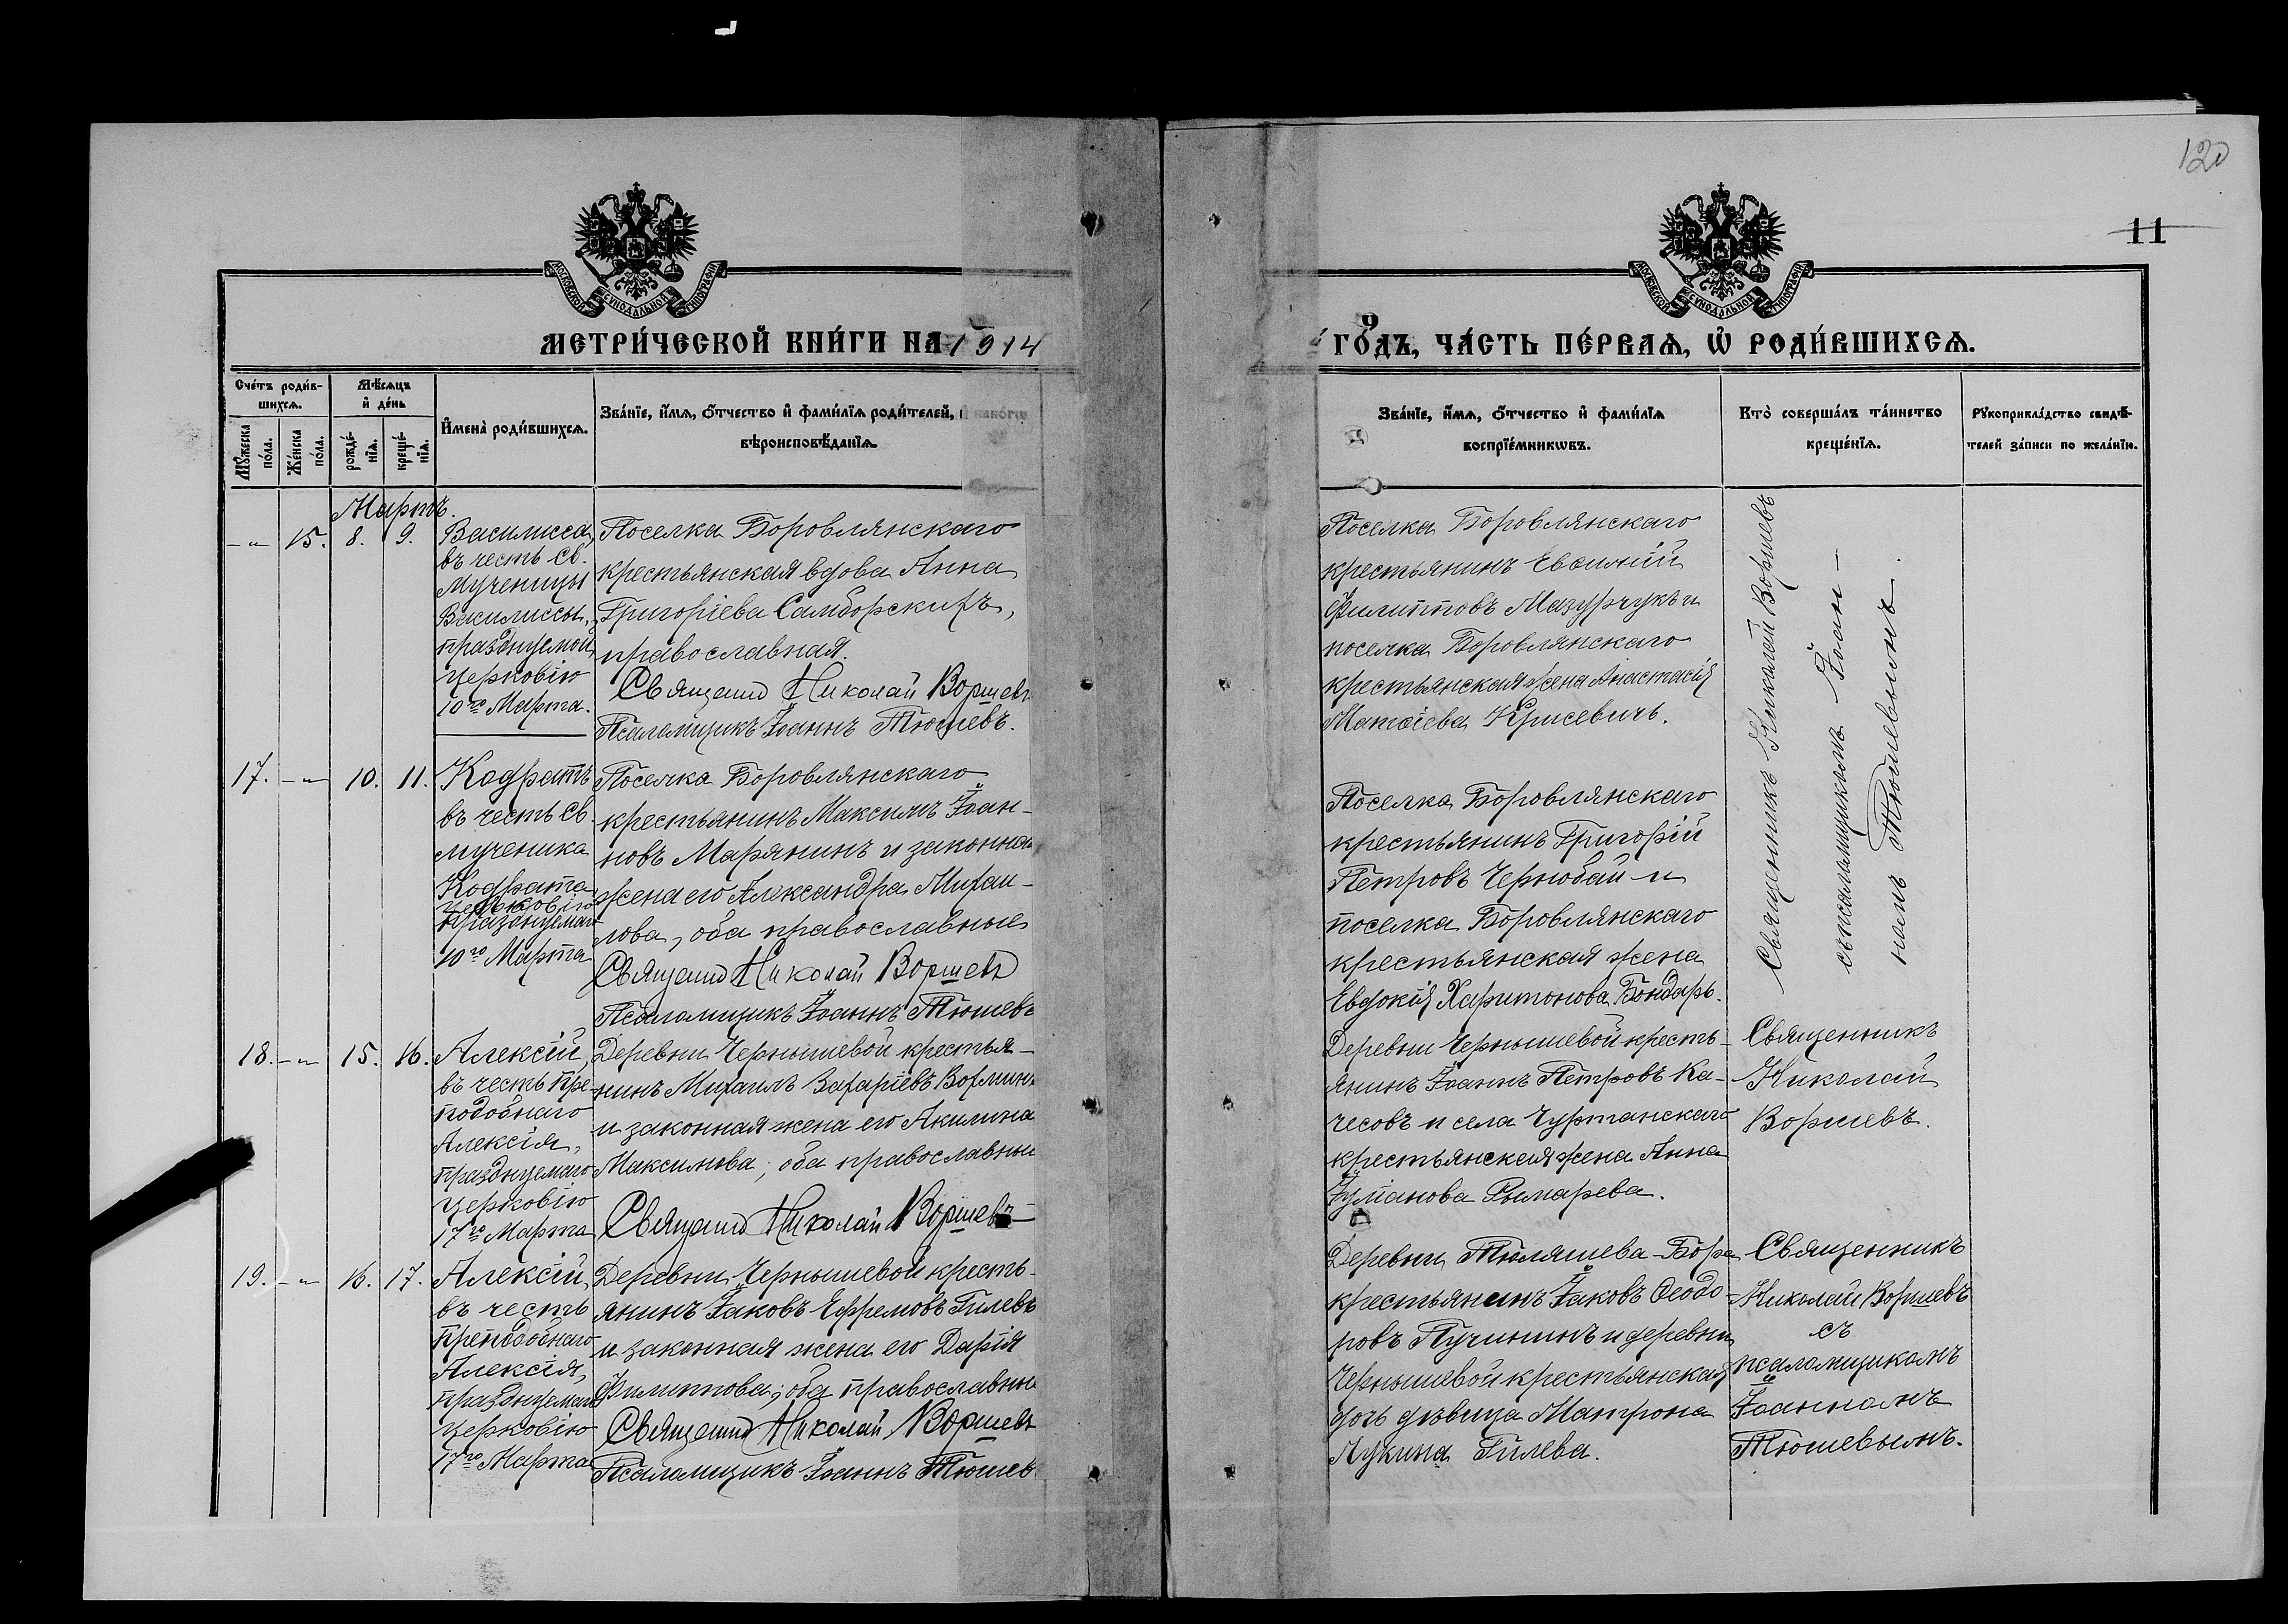 120
11
МОСКОВСКОЙ СѴНОДАЛЬНОЙ ТИПОГРАФІИ
МОСКОВСКОЙ СѴНОДАЛЬНОЙ ТИПОГРАФІИ
МЕТРИ́ЧЕСКОЙ КНИ́ГИ НА 1914
ГО́ДЪ, ЧА́СТЬ ПЕ́РВАѦ, Ѡ҆ РОДИ́ВШИХСѦ.
Сче́тъ роди́в-
шихсѧ.
Мꙋ́жеска по́ла.
Же́нска по́ла.
Мѣ́сѧцъ
и҆ де́нь
рожде́-
нїѧ.
креще́-
нїѧ.
И҆мена̀ роди́вшихсѧ.
Зва́нїе, и҆́мѧ, ѻ҆́тчество и҆ фами́лїѧ роди́телей, и҆ како́гѡ
вѣроисповѣ́данїѧ.
Зва́нїе, и҆́мѧ, ѻ҆́тчество и҆ фами́лїѧ
воспрїе́мникѡвъ.
Кто̀ соверша́лъ та́инство
креще́нїѧ.
Рꙋкоприкла́дство свидѣ́-
телей за́писи по жела́нїю.
Мартъ.
-„- 15. 8. 9.
Василисса,
въ честь св.
мученицы
Василиссы,
празднуемой
церковію
10го Марта.
Поселка Боровлянскаго
крестьянская вдова Анна
Григоріева Самборскихъ,
православная.
Священ Николай Воршевъ
Псаломщикъ Іоаннъ Тюшевъ.
Поселка Боровлянскаго
крестьянинъ Евсимій
Филипповъ Мазурчукъ и
поселка Боровлянскаго
крестьянская жена Анастасія
Матѳіева Крисевичъ.
Священникъ Николай Воршевъ
съ псаломщикомъ Іоан-
номъ Тюшевымъ.
17. -„- 10. 11.
Кодратъ
въ честь св.
мученика
Кодрата
церковію
празднуемаго
10го Марта
Поселка Боровлянскаго
крестьянинъ Максимъ Іоан-
новъ Марянинъ и законная
жена его Александра Михаи-
лова, оба православные
Священ Николай Воршевъ
Псаломщикъ Іоаннъ Тюшевъ
Поселка Боровлянскаго
крестьянинъ Григорій
Петровъ Чернобай и
поселка Боровлянскаго
крестьянская жена
Евдокія Харитонова Бондарь.
18. -„- 15. 16.
Алексій,
въ честь пре-
подобнаго
Алексія,
празднуемаго
церковію
17го Марта
Деревни Чернышевой крестья-
нинъ Михаилъ Захаріевъ Вохминъ
и законная жена его Акилина
Максимова; оба православны
Священ Николай Воршевъ
Деревни Чернышевой кресть-
янинъ Іоаннъ Петровъ Ка-
чесовъ и села Чуртанскаго
крестьянская жена Анна
Іуліанова Рымарева.
Священникъ
Николай
Воршевъ.
19. -„- 16. 17.
Алексій,
въ честь
преподобнаго
Алексія,
празднуемаго
церковію
17го Марта
Деревни Чернышевой кресть-
янинъ Іаковъ Ефремовъ Гилевъ
и законная жена его Дарія
Филиппова; оба православны
Священ Николай Воршевъ
Псаломщикъ Іоаннъ Тюшевъ
Деревни Тюляшева-Бора
крестьянинъ Іаковъ Ѳеодо-
ровъ Пучининъ и деревни
Чернышевой крестьянская
дочь девица Матрона
Лукина Гилева.
Священникъ
Николай Воршевъ
съ
псаломщикомъ
Іоанномъ
Тюшевымъ.